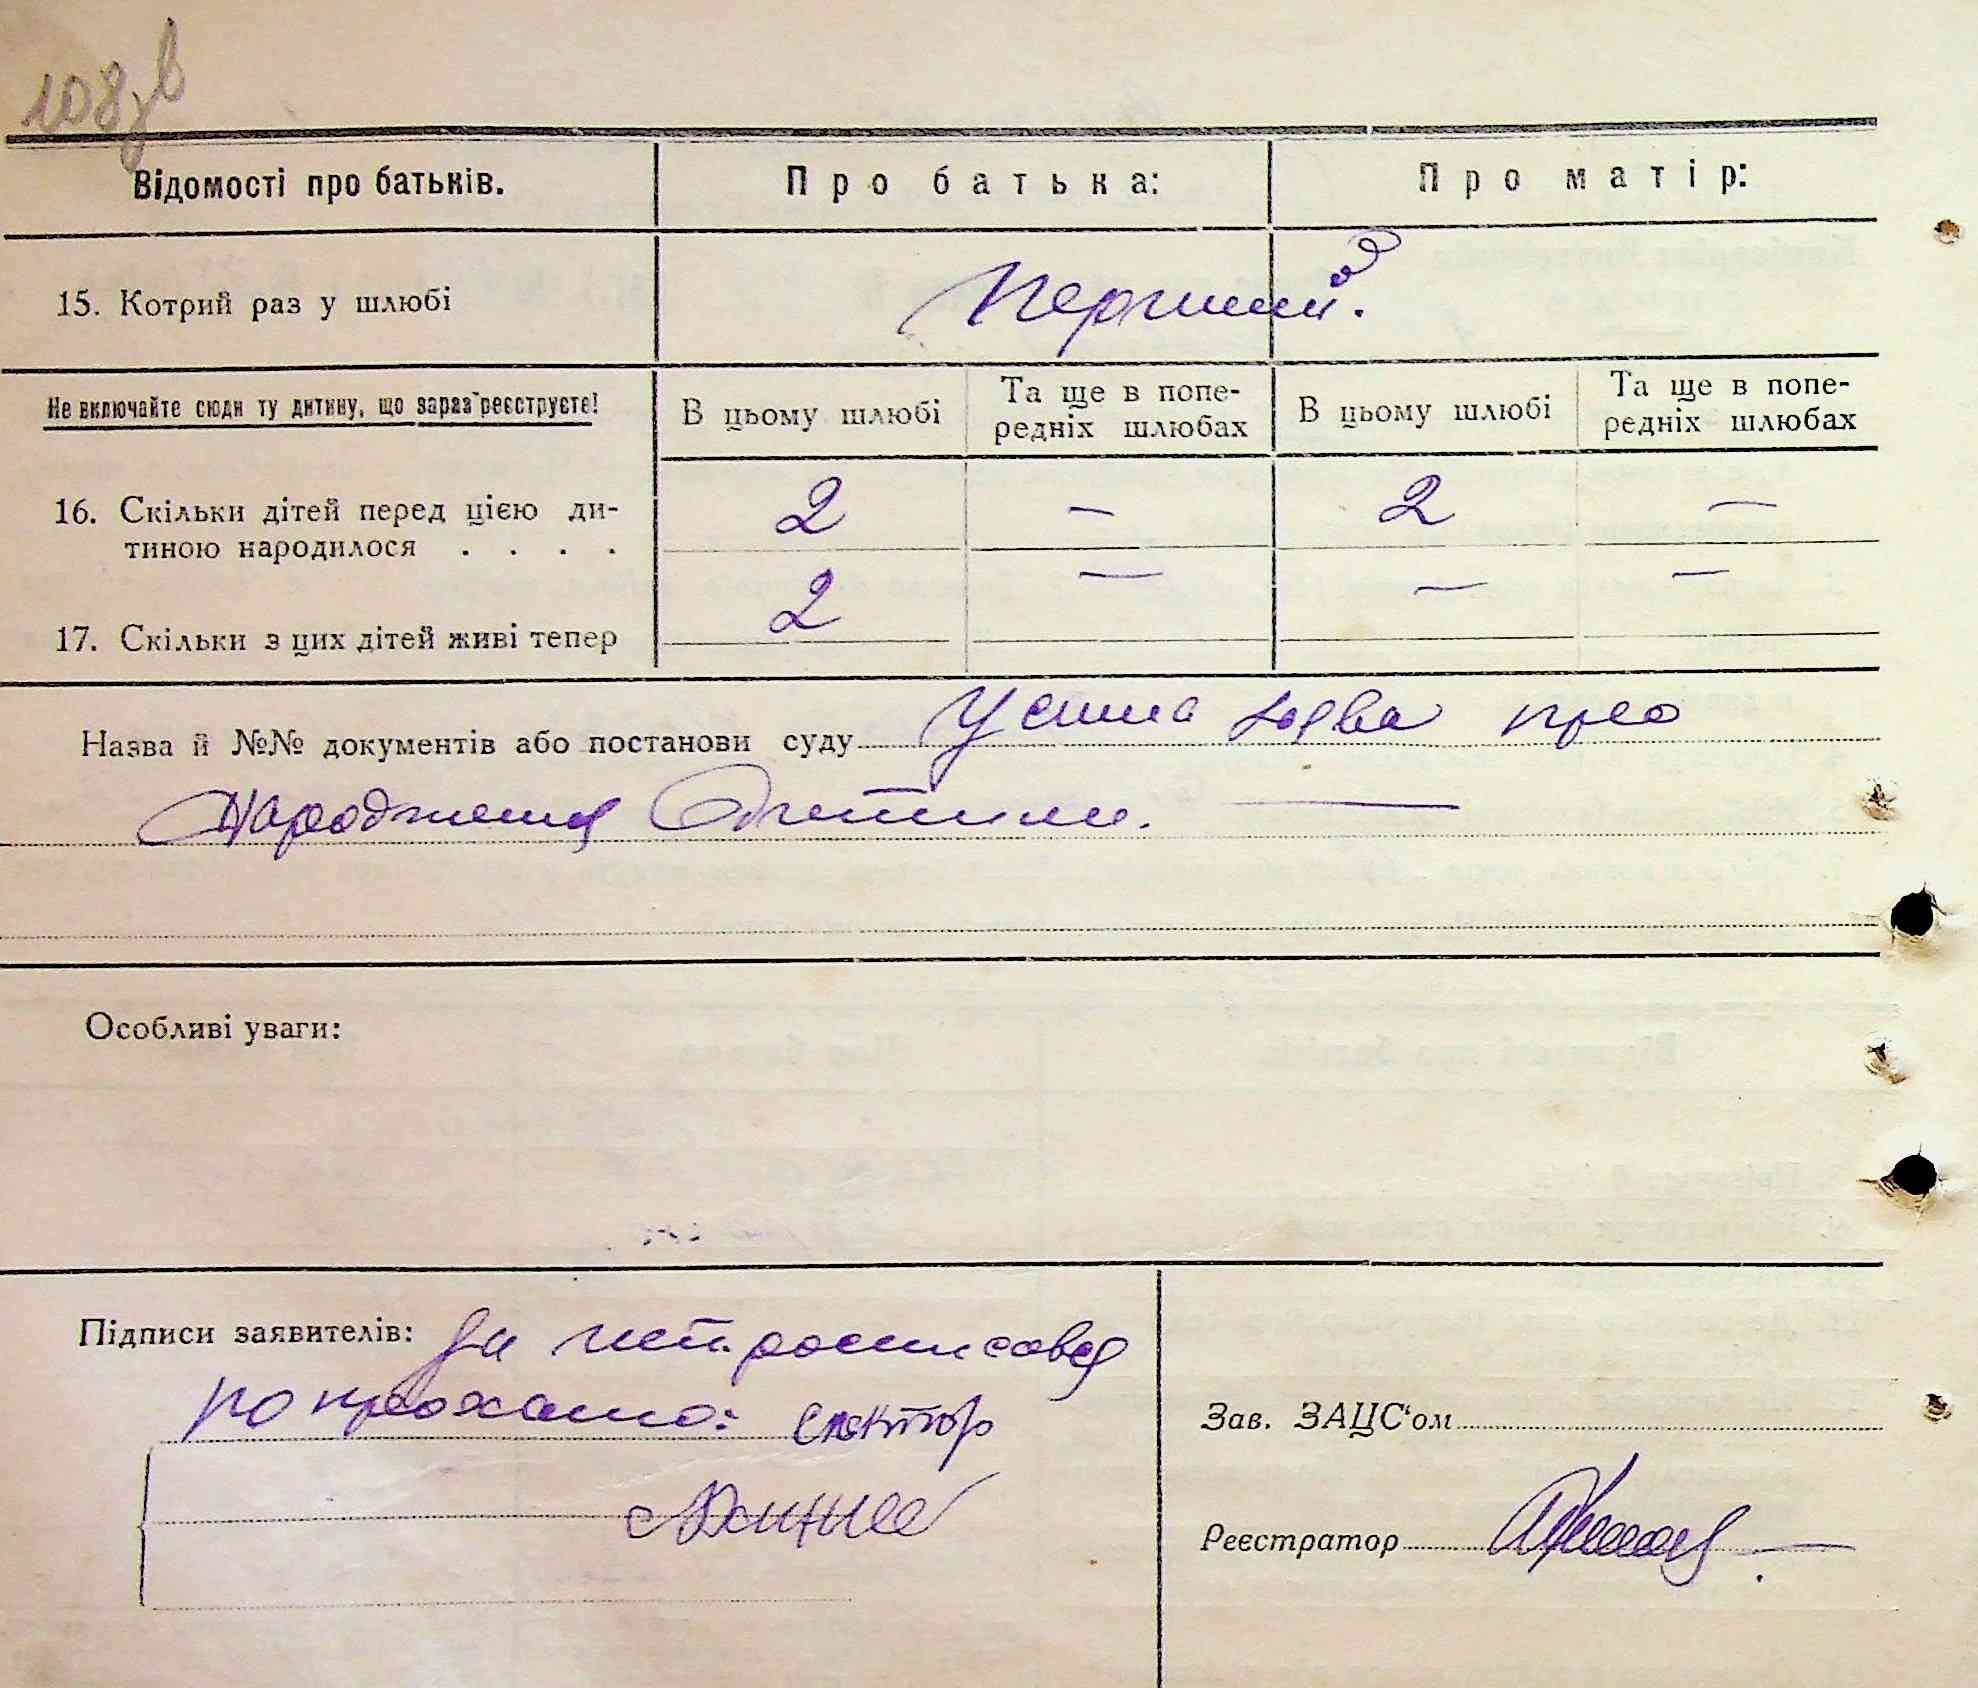 108зв
Відомості про батьків. Про батька: Про матір:
15. Котрий раз у шлюбі Перший.
Не включайте сюди ту дитину, що зараз реєструєте!
В цьому шлюбі Та ще в попе-
редніх шлюбах В цьому шлюбі Та ще в попе-
редніх шлюбах
16. Скільки дітей перед цією ди-
тиною народилося . . . . 2 — 2 —
17. Скільки з цих дітей живі тепер 2 — — —
Назва й №№ документів або постанови суду Усна заява про
народження дитини. —
Особливі уваги:
Підписи заявителів: За
попрохано: Спектор
Зав. ЗАЦС'ом
Реєстратор